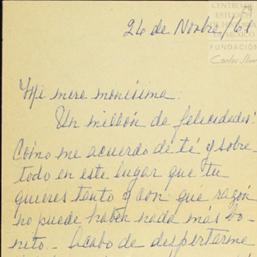 26 de Novbre/61
CENTRO DE
ESTUDIOS
FUNDACIÓN
Mi mere monísima:
Un millón de felicidades!
Cómo me acuerdo de tí y sobre
todo en este lugar que tu
quieres tanto y con que razón
no puede haber nada más bo-
nito.- Acabo de despertarme